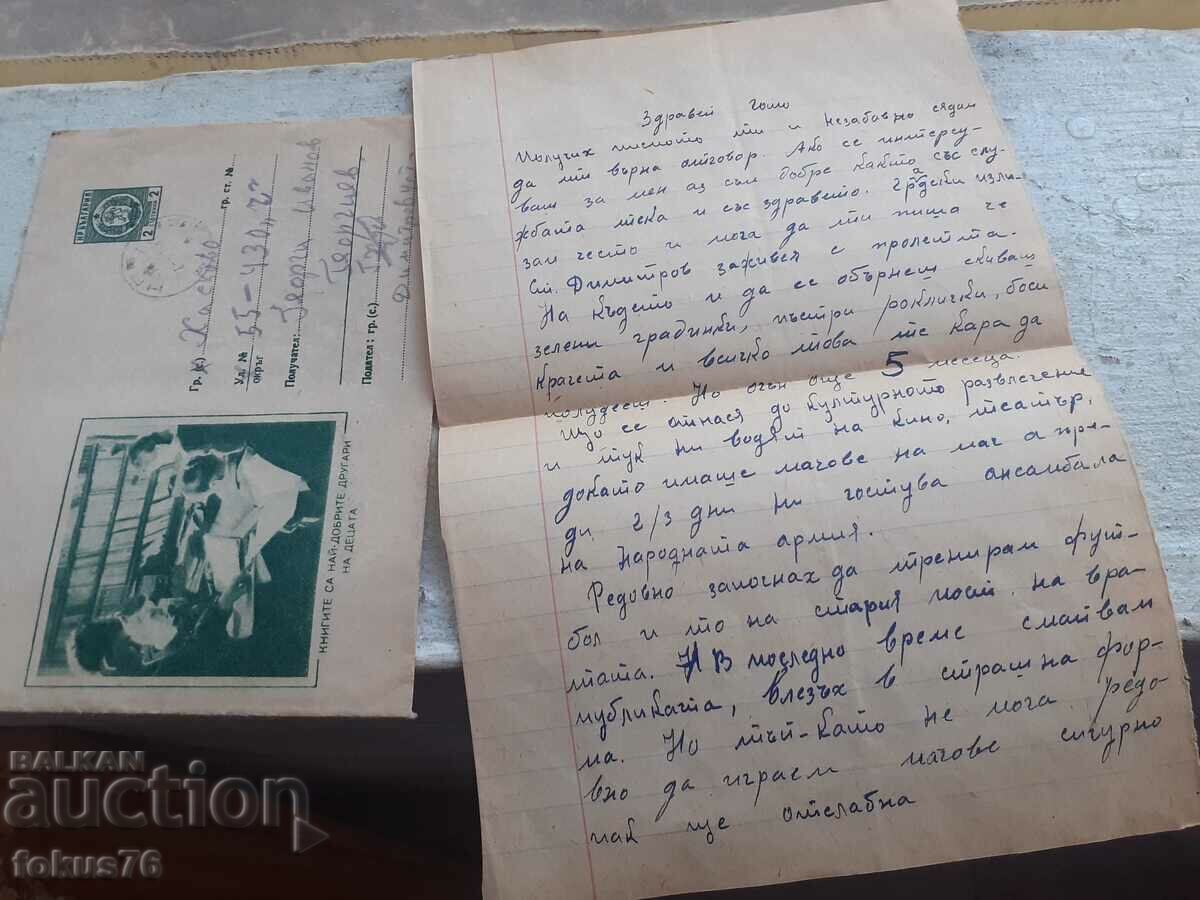 Здравей Гошо
Получих писмото ти и незабавно сядам
да ти върна отговор. Ако се интересу-
ваш за мен аз съм добре както със слу-
жбата така и със здравето. Градски изли-
зам често и мога да ти пиша че
ст. Димитров заживя с пролетта.
На където и да се обърнеш скиваш
зелени градинки, пъстри роклички, боси
крачета и всичко това те кара да
полудееш. Но още 5 месеца.
Що се отнася до културното развлечение
и тук ни водят на кино, театър,
докато имаше мачове на мач а пре-
ди 2/3 дни ни гостува ансамбала
на Народната армия.
Редовно започнах да тренирам фут-
бол и то на стария пост на вра-
тата. В последно време смайвам
публиката, влезъх в страшна фор-
ма. Но тъй-като не мога редо-
вно да играем мачове сигурно
пак ще отслабна
НР БЪЛГАРИЯ
2
2
Гр. (с.) Хасково гр. ст. №
Ул. № 55-430
окръг
Получател: Георги Иванов
Георгиев
Подател: гр. (с.)
Димитров
КНИГИТЕ СА НАЙ-ДОБРИТЕ ДРУГАРИ
НА ДЕЦАТА
BALKAN
auction
fokus76